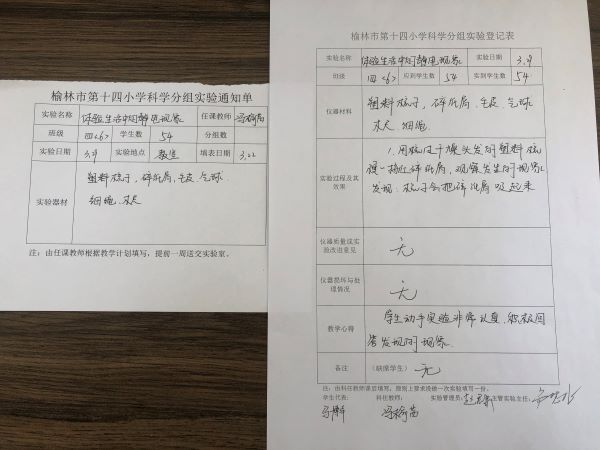 榆林市第十四小学科学分组实验通知单
实验名称 体验生活中的静电现象 任课教师 冯榆苗
班级 四<6> 学生数 54 分组数
实验日期 3.9 实验地点 教室 填表日期 3.22
实验器材 塑料梳子，碎纸屑，毛皮 气球
细绳 木尺
注：由任课教师根据教学计划填写，提前一周送交实验室。
榆林市第十四小学科学分组实验登记表
实验名称 体验生活中的静电现象 实验日期 3.9
班级 四<6> 应到学生数 54 实到学生数 54
仪器材料 塑料梳子，碎纸屑，毛皮 气球
木尺 细绳
实验过程及其效果 1.用梳过干燥头发的塑料梳
慢慢接近碎纸屑，观察发生的现象
发现：梳子会把碎纸屑吸起来
仪器质量或实验改进意见 无
仪器损坏与处理情况 无
教学心得 学生动手实验非常认真，积极回
答发现的现象
备注 （缺席学生） 无
注：由科任教师课后填写，原则上要求没做一次实验填写一份。
学生代表： 科任教师： 实验管理员： 主管实验主任：
冯榆苗